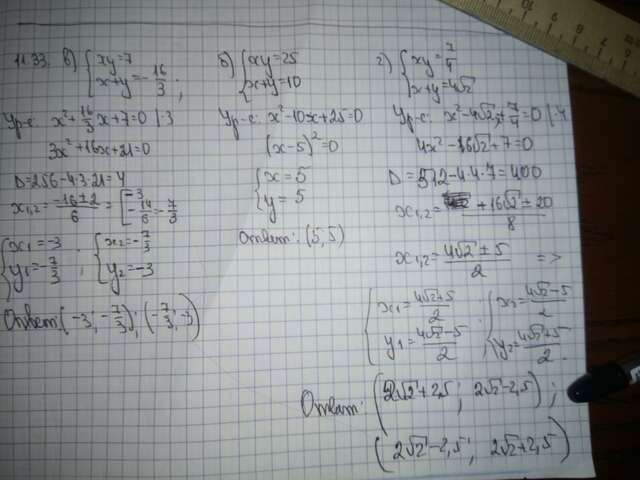 11.33. в) { xy = 7
x+y = -16/3 ;
Ур-е: x² + 16/3 x + 7 = 0 | ·3
3x² + 16x + 21 = 0
D = 256 - 4·3·21 = 4
x₁,₂ = (-16 ± 2)/6 = [ -3
-14/6 = -7/3
{ x₁ = -3
y₁ = -7/3 ; { x₂ = -7/3
y₂ = -3
Ответ: (-3; -7/3); (-7/3; -3)
б) { xy = 25
x+y = 10
Ур-е: x² - 10x + 25 = 0
(x-5)² = 0
{ x = 5
y = 5
Ответ: (5, 5)
г) { xy = 7/4
x+y = 4√2
Ур-е: x² - 4√2x + 7/4 = 0 | ·4
4x² - 16√2 + 7 = 0
D = 512 - 4·4·7 = 400
x₁,₂ = (+16√2 ± 20)/8
x₁,₂ = (4√2 ± 5)/2 =>
{ x₁ = (4√2+5)/2
y₁ = (4√2-5)/2 ; { x₂ = (4√2-5)/2
y₂ = (4√2+5)/2.
Ответ: (2√2+2,5; 2√2-2,5);
(2√2-2,5; 2√2+2,5)